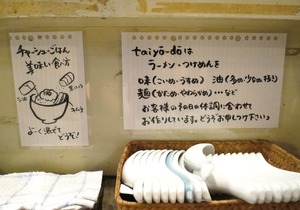 チャーシューごはん
美味い食べ方
よーく混ぜて
どうぞ!
taiyō-dōは
ラーメン・つけめんを
味(こいめ・うすめ) 油(多め・少なめ・抜き)
麺(かため・やわらかめ)…など
お客様の和日の体調に合わせて
お作りしています。どうぞお申しつけ下さい♪